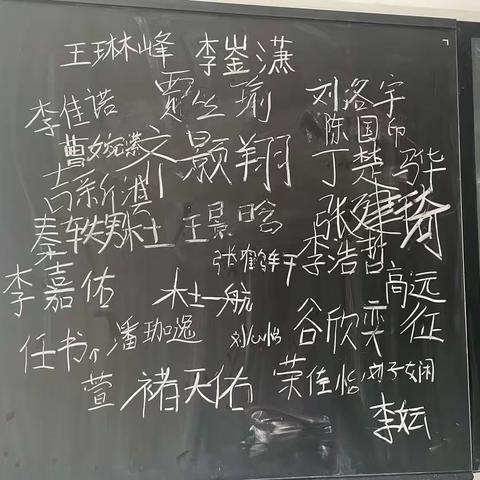 王琳峰 李崟潇
李佳诺 贾丝瑜 刘洛宇
曹婉潆 齐景翔 陈国币
吉新源 丁楚骅
秦轶男 杜 王景晗 张建琦
张鹤千 李浩哲
李嘉佑 杜一航 高远征
任书个萱 潘珈逸 刘心怡 谷欣奕
褚天佑 荣佳怡 刘子娴
李妘